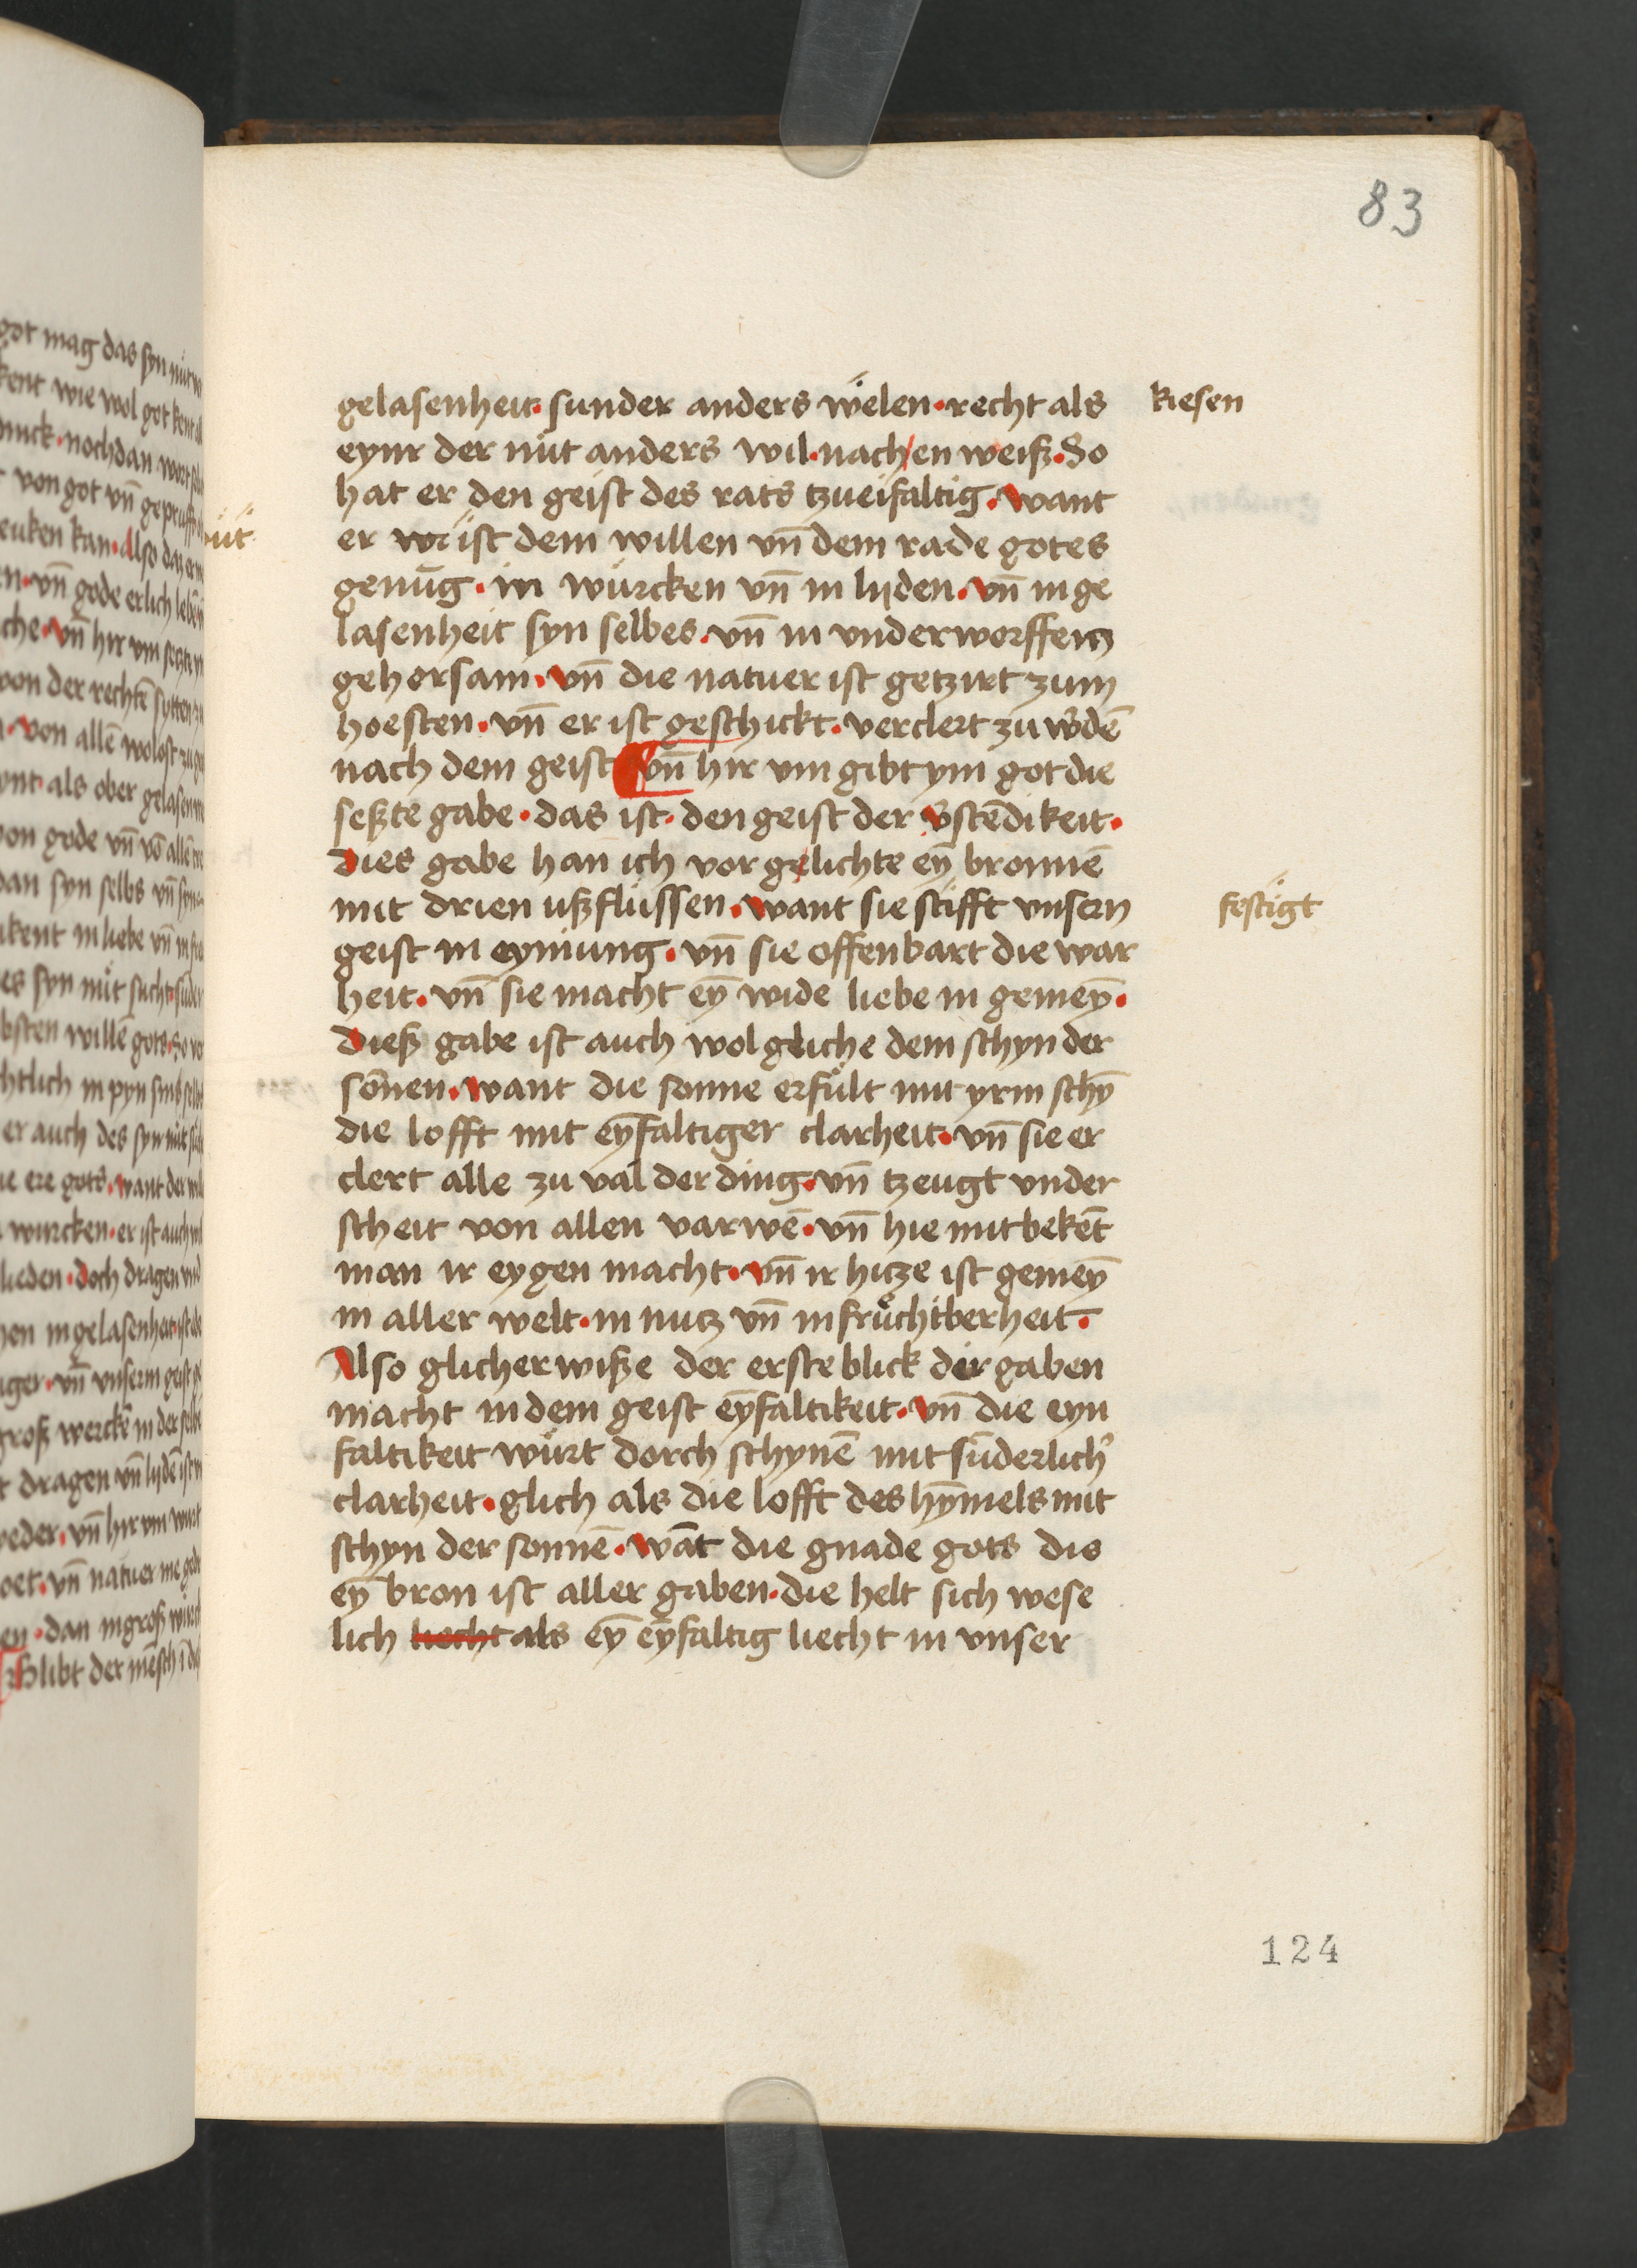 83
gelasenheit · sunder anders wëlen · recht als
kiesen
eynr der nüt anders wil · nach en weiß · So
hat er den geist des rats tzueifaltig · want
er ist dem willen vn̄ dem rade gotes
genūg · in würcken vn̄ in lijden · vn̄ in ge
lasenheit syn selbes · vn̄ in vnderworffen
gehorsam · vn̄ die natuer ist getzirt zum
hoesten · vn̄ er ist geschickt · verclert zu w̄dē
nach dem geist vn̄ hir vm gibt ym got die
seßte gabe · das ist · den geist der v̄stēdikeit ·
Dies gabe han ich vor gelichte eȳ bronnē
mit drien ußflüssen · want sie stifft vnsern
festigt
geist in eyniung · vn̄ sie offenbart die war
heit · vn̄ sie macht eȳ wide liebe in gemeȳ ·
Dieß gabe ist auch wol gliche dem schyn der
sōnen · want die sonne erfült mit yrm schȳ
die lofft mit eȳfaltiger clarheit · vn̄ sie er
clert alle zu val der ding · vn̄ tzeugt vnder
scheit von allen varwē · vn̄ hie mit bekēt
man ir eygen macht · vn̄ ir hitze ist gemeȳ
in aller welt · in nutz vn̄ in früchtberheit ·
Also glicher wiße der erste blick dir gaben
macht in dem geist eȳfaltikeit · vn̄ die eyn
faltikeit würt dorch schynē mit sūderlich'
clarheit · glich als die lofft des hȳmels mit
schyn der sonnē · wāt die gnade gots die
eȳ bron ist aller gaben · die helt sich wese
lich liecht als eȳ eȳfaltig liecht in vnser
124